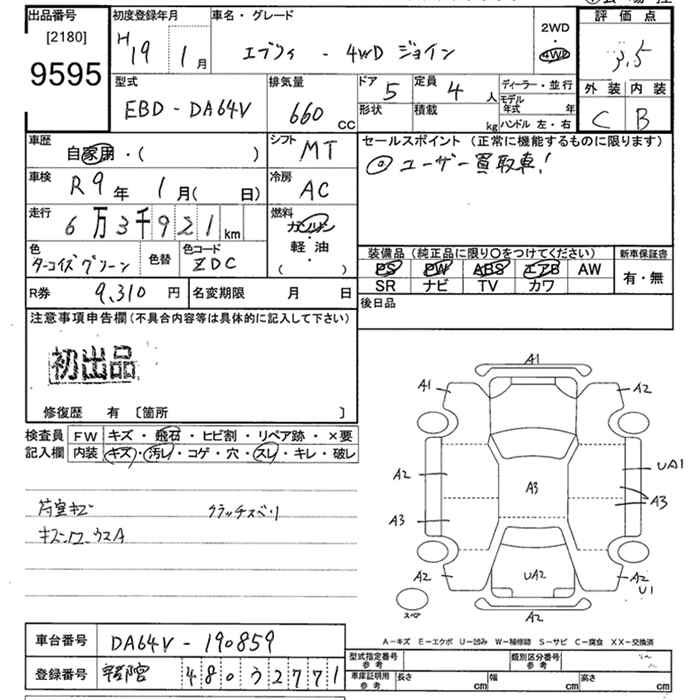 出品番号
[2180]
9595
初度登録年月
H19 1月
車名・グレード
エブリィ - 4WD ジョイン
2WD
4WD
評価点
3.5
型式
EBD-DA64V
排気量
660 cc
ドア 5
形状
定員 4 人
積載 kg
ディーラー・並行
モデル年式 年
ハンドル 左・右
外装 内装
C B
車歴
自家用・( )
シフト
MT
セールスポイント(正常に機能するものに限ります)
◎ユーザー買取車!
車検
R9年 1月( 日)
冷房
AC
走行
6万3千921km
燃料
ガソリン
軽・油
( )
色
ターコイズグリーン
色替
色コード
ZDC
装備品(純正品に限り○をつけてください)
PS PW ABS エアB AW
SR ナビ TV カワ
新車保証書
有・無
R券 9,310円
名変期限 月 日
後日品
注意事項申告欄(不具合内容等は具体的に記入して下さい)
初出品
修復歴 有 〔箇所 〕
検査員記入欄
FW キズ・飛石・ヒビ割・リペア跡・×要
内装 キズ・汚レ・コゲ・穴・スレ・キレ・破レ
荷室キズ クラッチスベリ
A1
A1 A2
A2 A3 UA1
A3 A3
A2 UA2 A2
U1
スペア A2
A-キズ E-エクボ U-凹み W-補修跡 S-サビ C-腐食 XX-交換済
車台番号 DA64V-190859
登録番号 480 32771
型式指定番号 参考
類別区分番号 参考
車庫証明用 参考
長さ cm 幅 cm 高さ cm